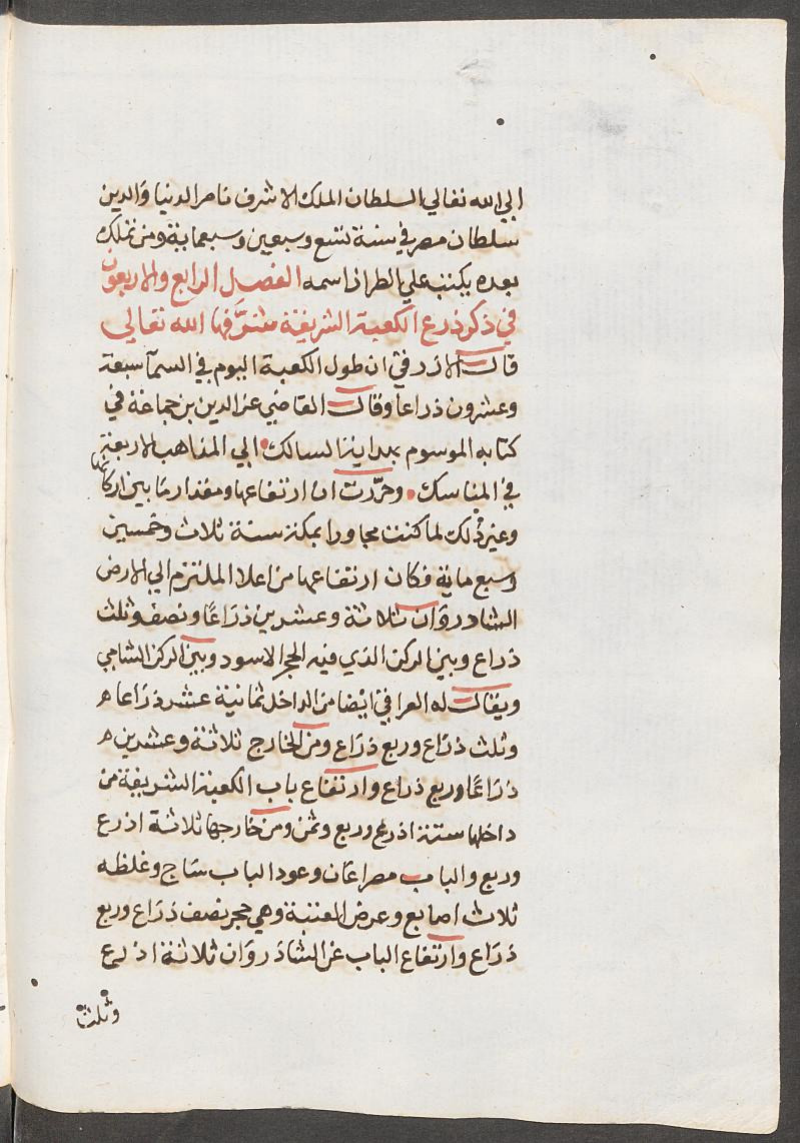 الي الله تعالي السلطان الملك الاشرف ناصر الدنيا والدين
سلطان مصر في سنة تسع وسبعين وسبعماية ومن تملك
بعده يكتب علي الطراز اسمه الفصل الرابع والاربعون
في ذكر ذرع الكعبة الشريفة شرَّفها الله تعالي
قال الازرقي ان طول الكعبة اليوم في السمآ سبعة
وعشرون ذراعا وقال القاضي عز الدين بن جماعة في
كتابه الموسوم بهداية السالك الي المذاهب الاربعة
في المناسك وحرّرت انا ارتفاعها ومقدار ما بين اركانها
وغير ذلك لما كنت مجاورا بمكة سنة ثلاث وخمسين
وسبع ماية فكان ارتفاعها من اعلا الملتزم الي الارض
الشادروان ثلاثة وعشرين ذراعًا ونصف وثلث
ذراع وبين الركن الذي فيه الحجر الاسود وبين الركن الشامي
ويقال له العراقي ايضا من الداخل ثمانية عشر ذراعا ه
وثلث ذراع وربع ذراع ومن الخارج ثلاثة وعشرين ه
ذراعًا وربع ذراع وارتفاع باب الكعبة الشريفة من
داخلها ستة اذرع وربع وثمن ومن خارجها ثلاثة اذرع
وربع والباب مصراعان وعود الباب ساج وغلظه
ثلاث اصابع وعرض العتبة وهي حجر نصف ذراع وربع
ذراع وارتفاع الباب عن الشاذروان ثلاثة اذرع
وثلث